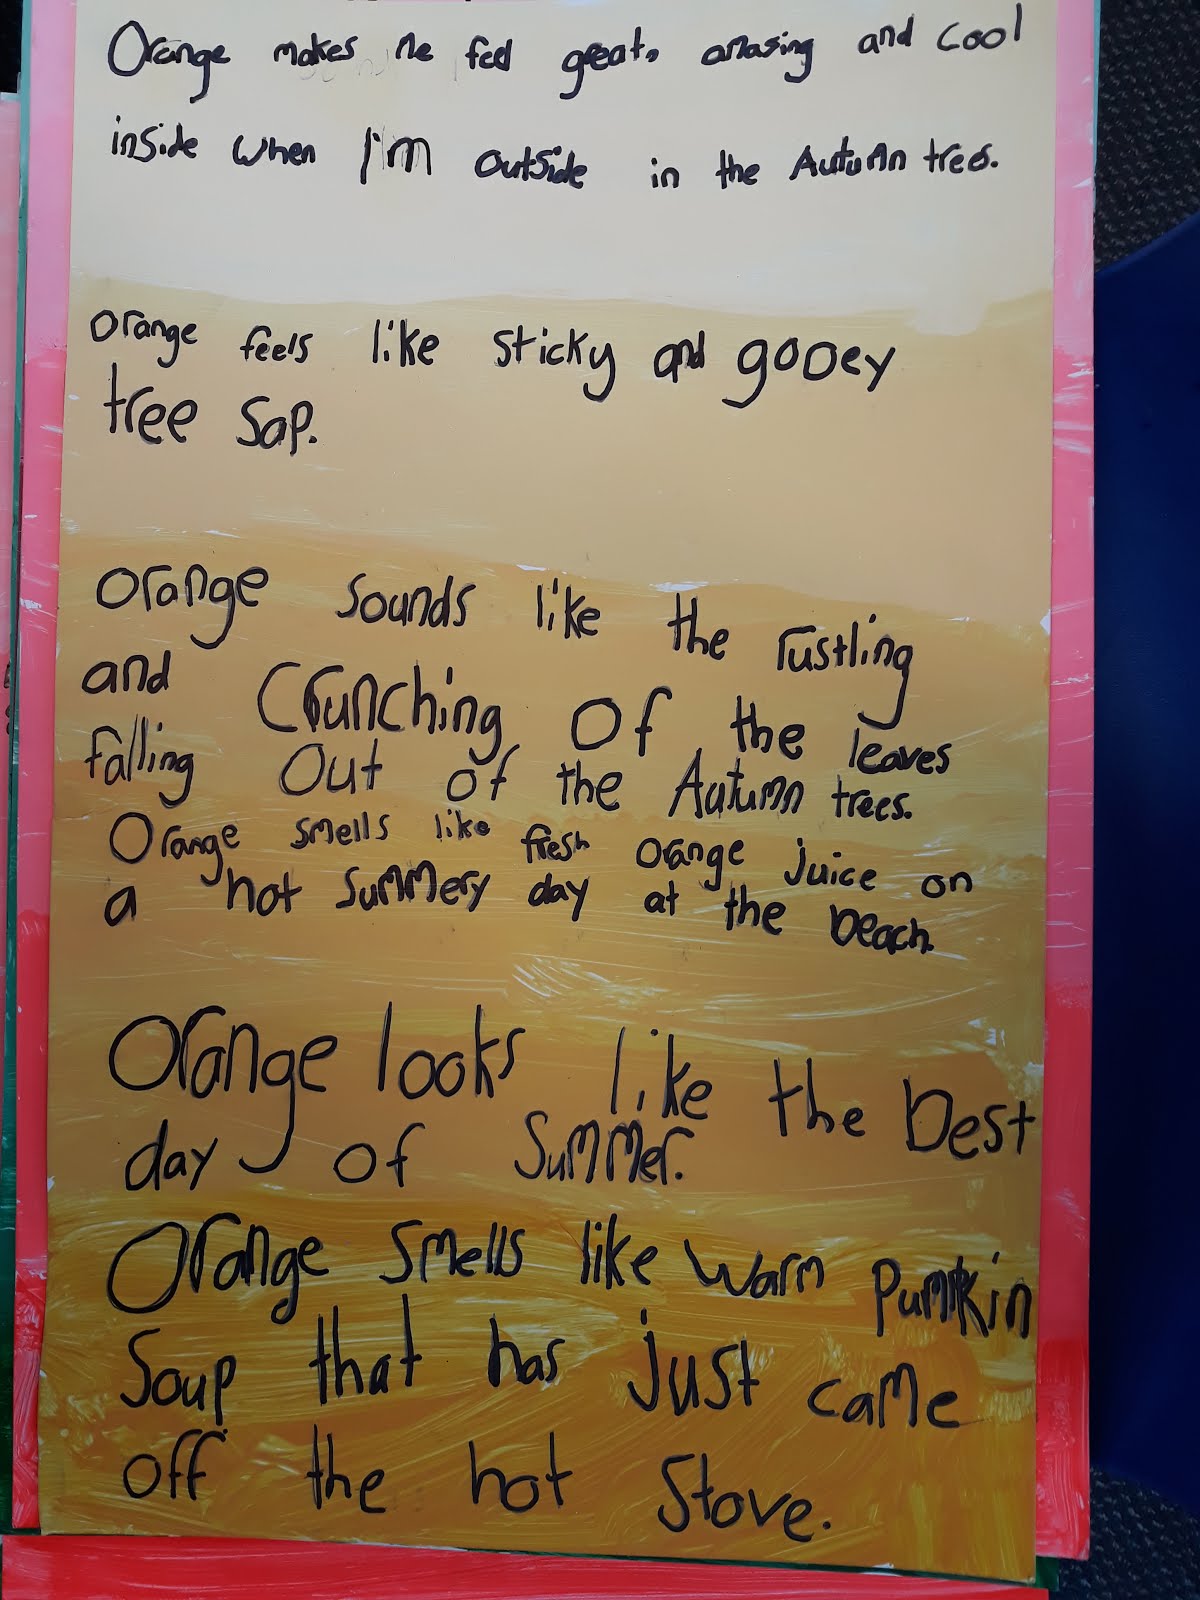 Orange makes me feel great, amasing and cool
inside when I'm outside in the Autumn trees.
orange feels like sticky and gooey
tree sap.
orange sounds like the rustling
and Crunching of the leaves
falling out of the Autumn trees.
Orange smells like fresh orange juice on
a hot summery day at the beach.
Orange looks like the best
day of Summer.
Orange smells like warm Pumpkin
Soup that has just came
off the hot Stove.